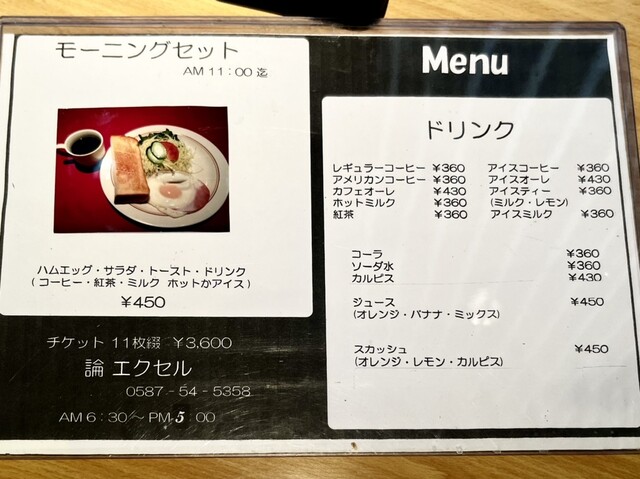 モーニングセット
AM 11:00 迄
ハムエッグ・サラダ・トースト・ドリンク
( コーヒー・紅茶・ミルク ホットかアイス )
¥450
チケット 11枚綴 ¥3,600
論 エクセル
0587 - 54 - 5358
AM 6:30〜PM 5:00
Menu
ドリンク
レギュラーコーヒー ¥360 アイスコーヒー ¥360
アメリカンコーヒー ¥360 アイスオーレ ¥430
カフェオーレ ¥430 アイスティー ¥360
ホットミルク ¥360 (ミルク・レモン)
紅茶 ¥360 アイスミルク ¥360
コーラ ¥360
ソーダ水 ¥360
カルピス ¥430
ジュース ¥450
(オレンジ・バナナ・ミックス)
スカッシュ ¥450
(オレンジ・レモン・カルピス)